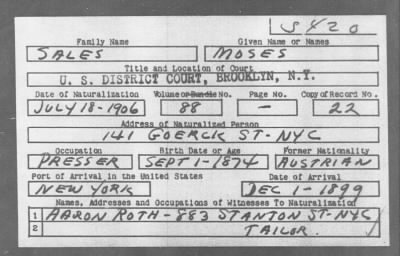 S420
Family Name Given Name or Names
SALES MOSES
Title and Location of Court
U. S. DISTRICT COURT, BROOKLYN, N.Y.
Date of Naturalization Volume or Bundle No. Page No. Copy of Record No.
JULY 18-1906 88 — 22
Address of Naturalized Person
141 GOERCK ST-NYC
Occupation Birth Date or Age Former Nationality
PRESSER SEPT 1-1874 AUSTRIAN
Port of Arrival in the United States Date of Arrival
NEW YORK DEC 1-1899
Names, Addresses and Occupations of Witnesses To Naturalization
1 AARON ROTH-883 STANTON ST-NYC
2 TAILOR.